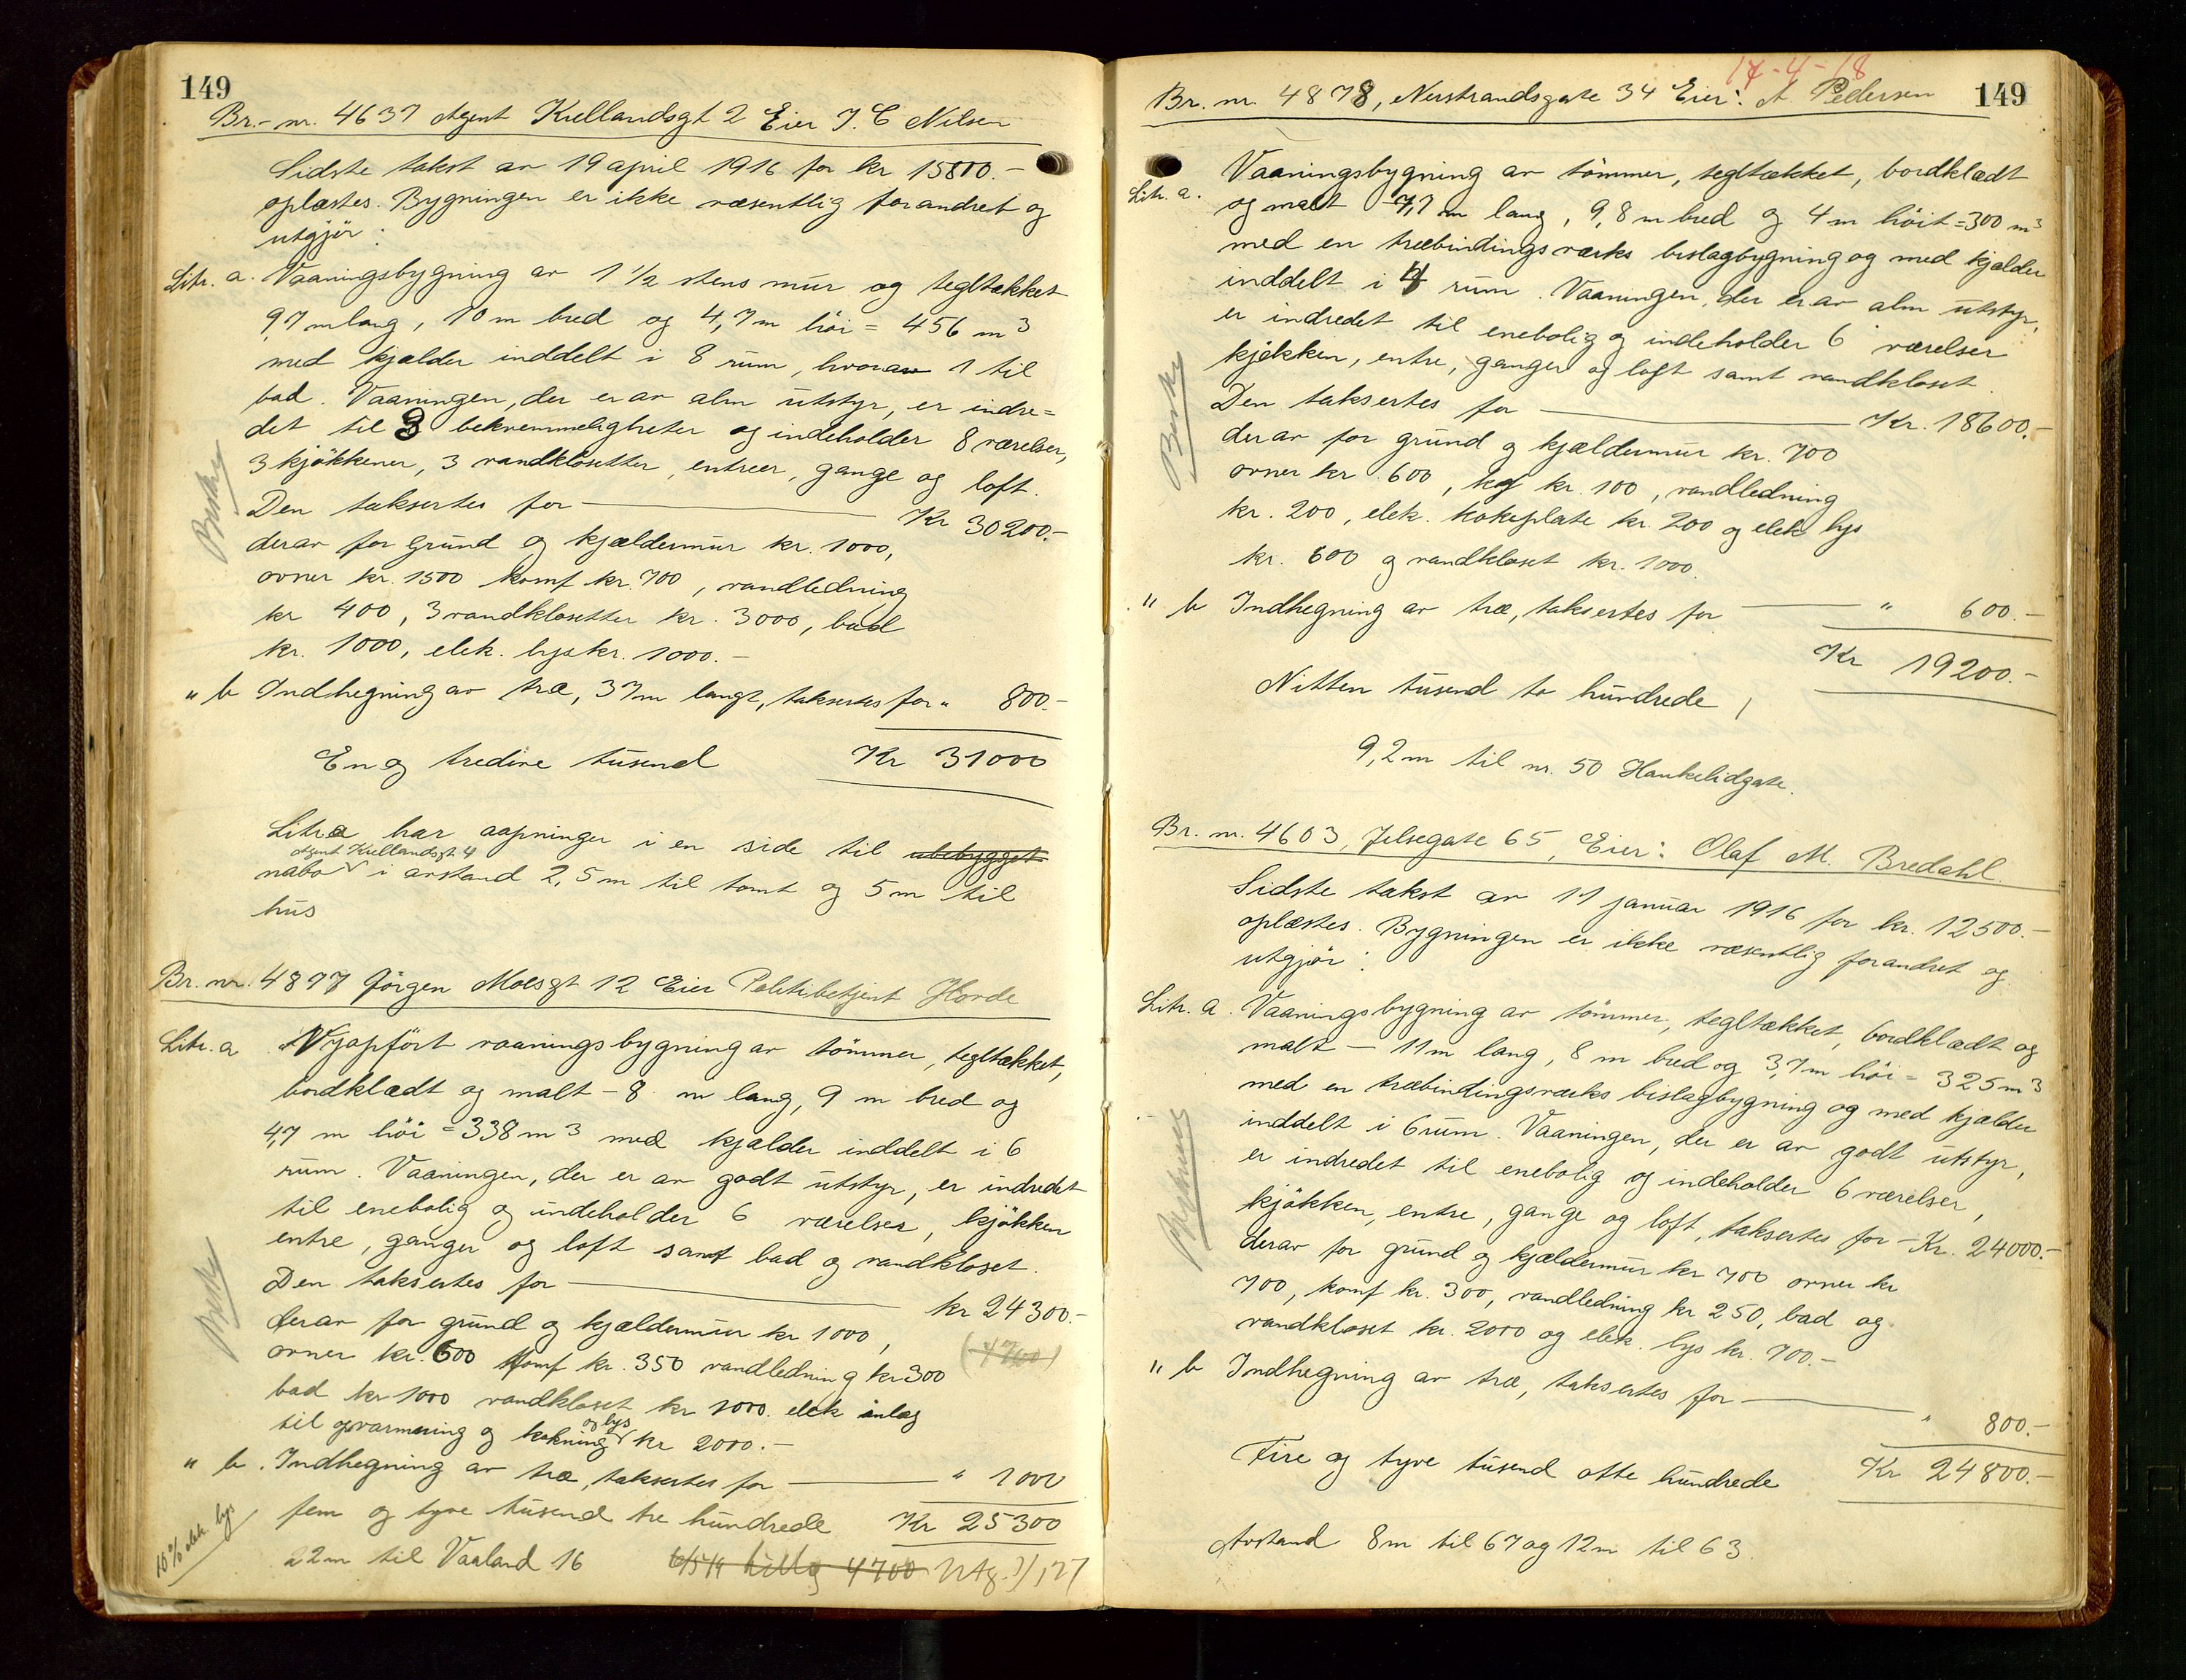 149
Br.- nr. 4637 Agent Kiellandsgt 2 Eier J. C Nilsen
Sidste takst av 19 april 1916 for kr 15800.-
oplæstes. Bygningen er ikke væsentlig forandret og
utgjør:
Litr. a. Vaaningsbygning av 1 1/2 stens mur og tegltækket
9,7 m lang, 10 m bred og 4,7 m høi = 456 m3
med kjælder inddelt i 8 rum, hvorav 1 til
bad. Vaaningen, der er av alm utstyr, er indre=
det til 3 bekvemmeligheter og indeholder 8 værelser,
3 kjøkkener, 3 vandklosetter, entreer, gange og loft.
Den taksertes for — Kr 30200.-
derav for grund og kjældermur kr. 1000,
ovner kr. 1500 komf kr. 700, vandledning
kr 400, 3 vandklosetter kr. 3000, bad
kr. 1000, elek. lys kr. 1000.-
" b Indhegning av træ, 37m langt, taksertes for " 800.-
En og tredive tusend Kr 31000
Litra har aapninger i en side til ubebygget
Agent Kiellandsgt 4
nabo i avstand 2,5 m til tomt og 5 m til
hus
Br. nr. 4897 Jörgen Moesgt 12 Eier Politibetjent Horde
Litr. a Nyopfört vaaningsbygning av tömmer, tegltækket,
bordklædt og malt - 8 m lang, 9 m bred og
4,7 m höi = 338 m3 med kjælder inddelt i 6
rum. Vaaningen, der er av godt utstyr, er indredet
til enebolig og indeholder 6 værelser, kjökken
entre, ganger og loft samt bad og vandkloset.
Den taksertes for — kr 24300.-
derav for grund og kjældermur kr 1000,
(4700)
ovner kr. 600 Komf kr. 350 vandledning kr 300
bad kr 1000 vandkloset kr 1000. elek inlæg
og lys
til opvarmning og kokning kr 2000.-
" b. Indhegning av træ, taksertes for — " 1000
fem og tyve tusend tre hundrede Kr 25300
10% elek. lys
22m til Vaaland 16 6/5 19 tillæg 4700
149
17-4-18
Br. nr. 4878, Nerstrandsgate 34 Eier: A. Pedersen
Litr. a. Vaaningsbygning av tömmer, tegltækket, bordklædt
og malt - 7,7 m lang, 9,8 m bred og 4 m höit = 300 m3
med en træbindingsværks bislagbygning og med kjælder
inddelt i 4 rum. Vaaningen, der er av alm utstyr,
er indredet til enebolig og indeholder 6 værelser
kjökken, entre, ganger og loft samt vandkloset.
Den taksertes for — Kr. 18600.-
derav for grund og kjældermur kr. 700
ovner kr 600, kg kr. 100, vandledning
kr. 200, elek. kokeplate kr. 200 og elek lys
kr. 600 og vandkloset kr. 1000.
" b Indhegning av træ, taksertes for — " 600.-
Kr 19200.-
Nitten tusend to hundrede
9,2m til nr. 50 Haukelidgate.
Br. nr. 4603, Jelsegate 65, Eier: Olaf M. Bredahl.
Sidste takst av 11 januar 1916 for kr. 12500.-
oplæstes. Bygningen er ikke væsentlig forandret og
utgjör:
Litr. a. Vaaningsbygning av tömmer, tegltækket, bordklædt og
malt - 11m lang, 8 m bred og 3,7m höi = 325m3
med en træbindingsværks bislagbygning og med kjælder
inddelt i 6 rum. Vaaningen, der er av godt utstyr,
er indredet til enebolig og indeholder 6 værelser,
kjökken, entre, gange og loft, taksertes for - Kr. 24000.-
derav for grund og kjældermur kr 700 ovner kr
700, komf kr. 300, vandledning kr 250, bad og
vandkloset kr. 2000 og elek. lys kr. 700.-
" b Indhegning av træ, taksertes for — " 800.-
Fire og tyve tusend otte hundrede Kr 24800.-
Avstand 8m til 67 og 12m til 63.